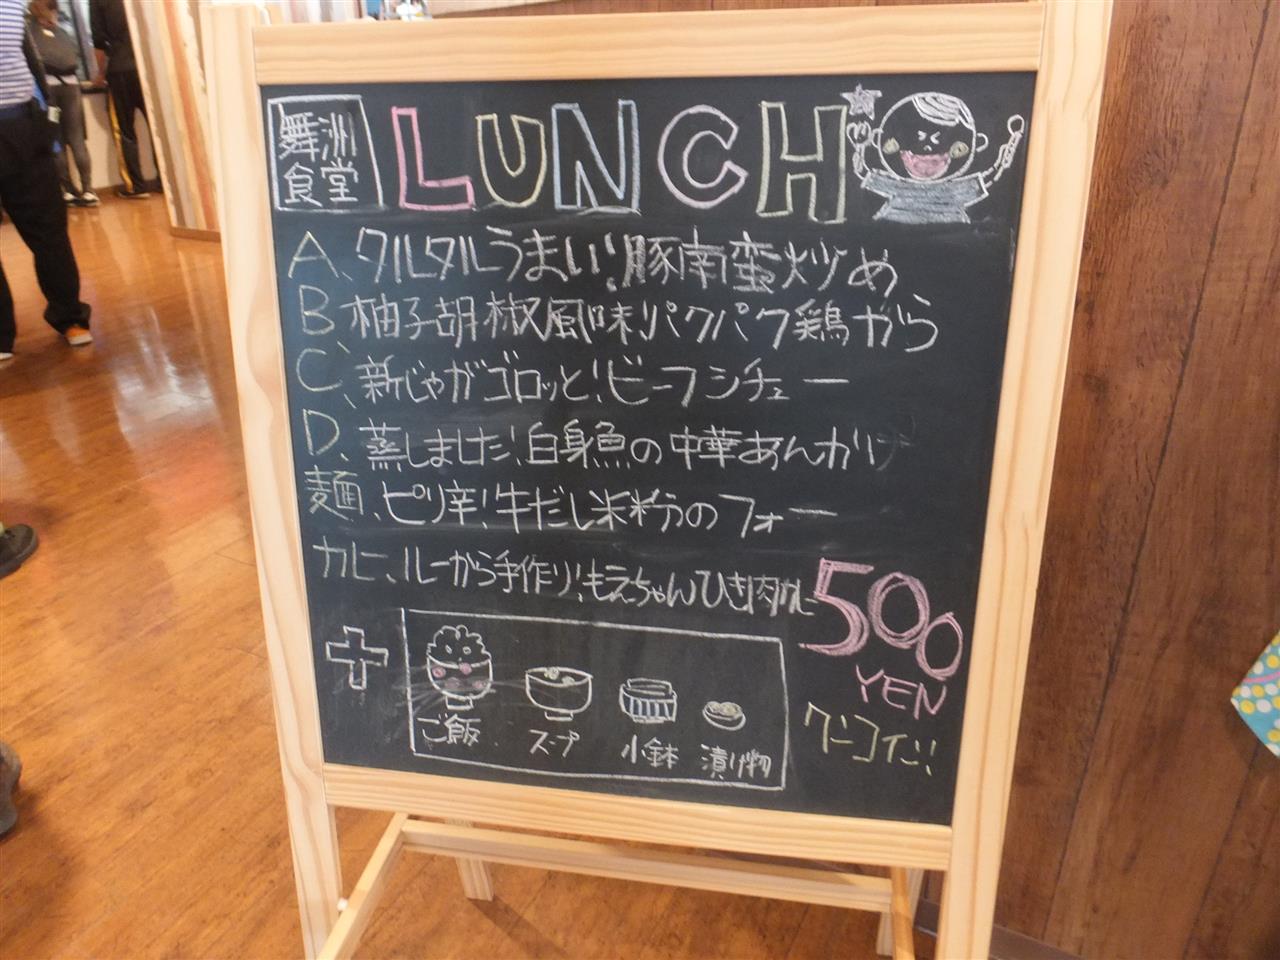 舞洲
食堂
LUNCH
A、タルタルうまい!豚南蛮炒め
B、柚子胡椒風味!パクパク鶏から
C、新じゃがゴロッと!ビーフシチュー
D、蒸しました!白身魚の中華あんかけ
麺、ピリ辛!牛だし米粉のフォー
カレー、ルーから手作り!もえちゃんひき肉カレー
500
YEN
ワンコイン!
ご飯 スープ 小鉢 漬け物